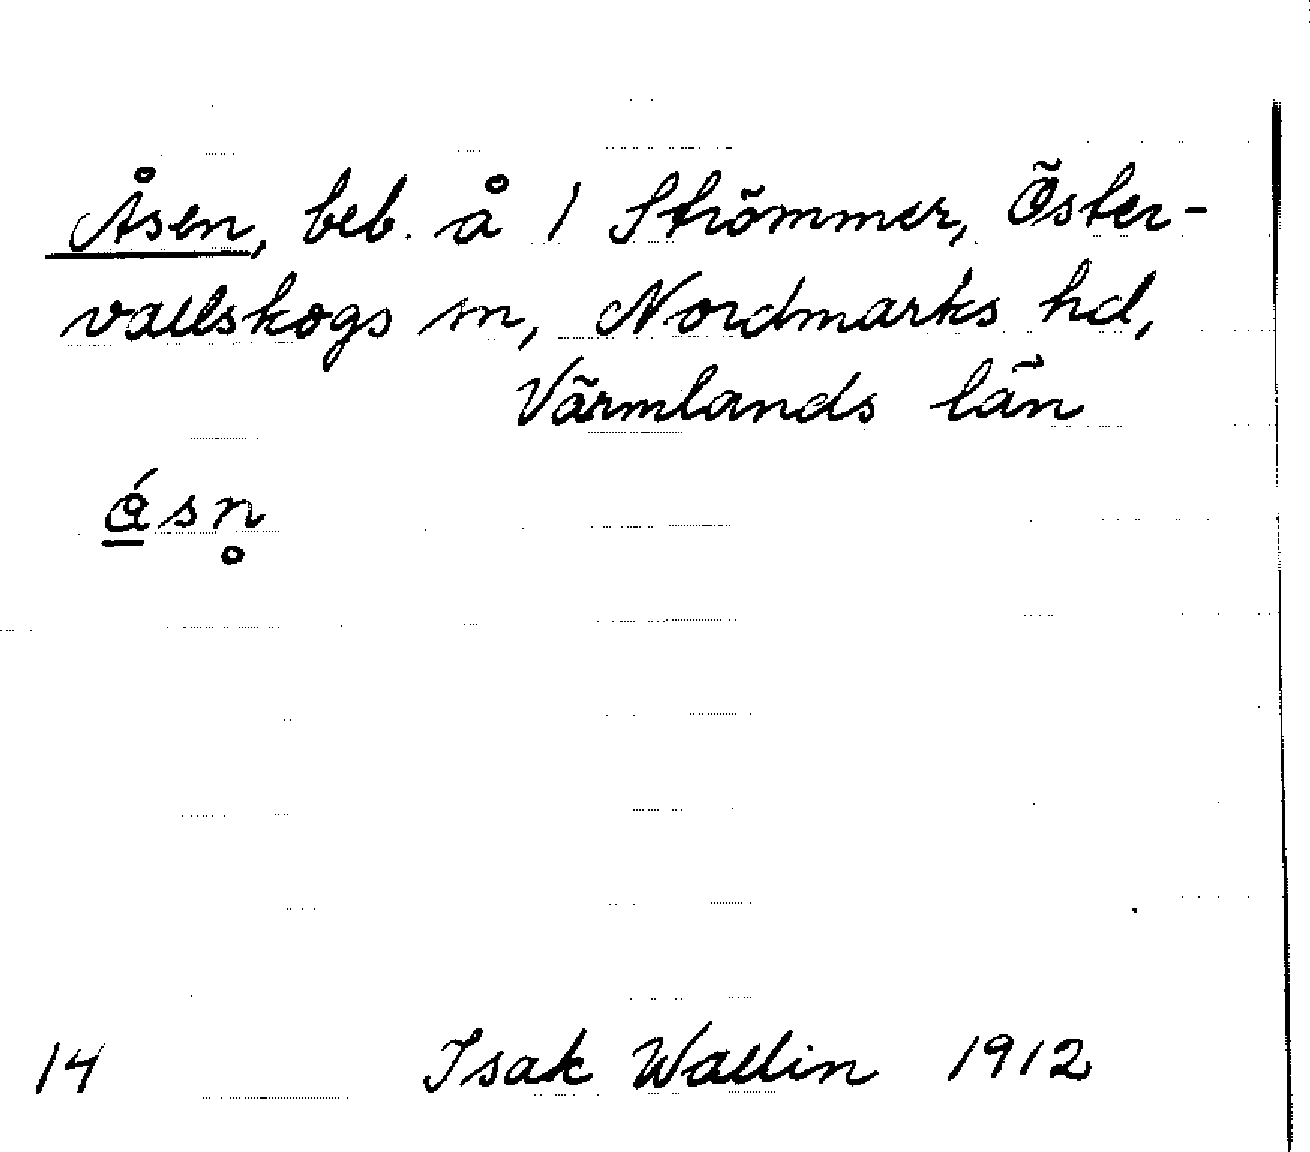 Åsen, beb. å 1 Strömmer, Öster-
vallskogs sn, Nordmarks hd,
Värmlands län
ǻsn̥
14 Isak Wallin 1912